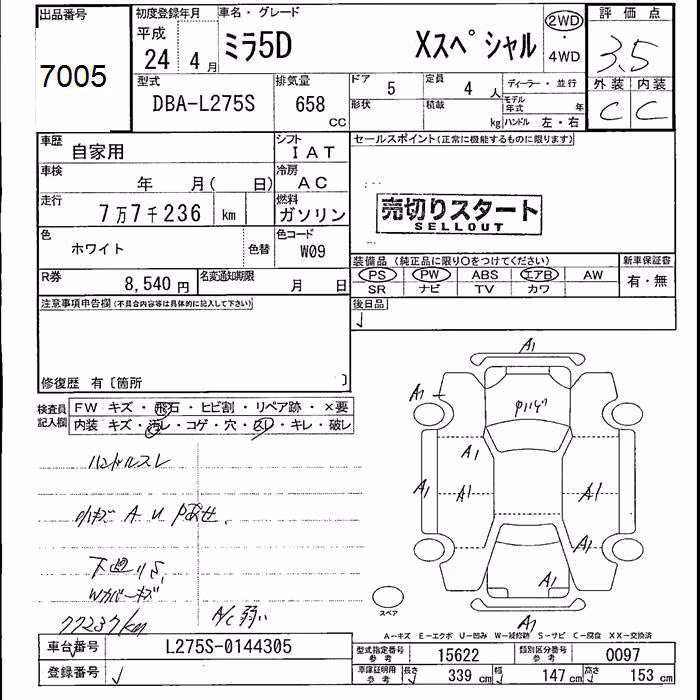 出品番号 初度登録年月 車名・グレード 評価点
7005 平成 24 年 4 月 ミラ5D Xスペシャル 2WD・4WD 3.5
型式 排気量 ドア 5 定員 4 人 ディーラー・並行 外装 内装
DBA-L275S 658 CC 形状 積載 kg モデル年式 年 ハンドル 左・右 C C
車歴 自家用 シフト IAT セールスポイント(正常に機能するものに限ります)
車検 年 月( 日) 冷房 AC
走行 7万7千236 km 燃料 ガソリン 売切りスタート
SELLOUT
色 ホワイト 色替 色コード W09
装備品(純正品に限り○をつけてください) 新車保証書
R券 8,540円 名変通知期限 月 日 PS PW ABS エアB AW 有・無
SR ナビ TV カワ
注意事項申告欄(不具合内容等は具体的に記入して下さい) 後日品
修復歴 有〔箇所 〕
検査員記入欄 FW キズ・飛石・ヒビ割・リペア跡・×要
内装 キズ・汚レ・コゲ・穴・スレ・キレ・破レ
A1
A1
ハンドルスレ A1
小キズ A U A1 A1 A1 A1
下廻りS
Wカバーキズ A1
77237km A/C弱い スペア A1
A−キズ E−エクボ U−凹み W−補修跡 S−サビ C−腐食 XX−交換済
車台番号 L275S-0144305 型式指定番号 参考 15622 類別区分番号 参考 0097
登録番号 車庫証明用 参考 長さ 339 cm 幅 147 cm 高さ 153 cm